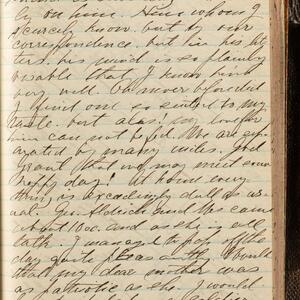 ly on him. Him whom I
scarcely know but by our
correspondence. but in his let
ters. his mind is so plainly
visable that I know him
very well. Oh never before did
I find one so suited to my
taste. but alas! my lover
him can not be id. We are sepe
rated by many miles. God
grant that we may meet some
happy day! At home every
thing is exceedingly dull as us
ual. Mr. Aldrich and Ms came
about 10 oc. and as she is all
talk. I managed to pass off the
day quite pleasantly. I would
that my dear mother was
as patriotic as she. I would